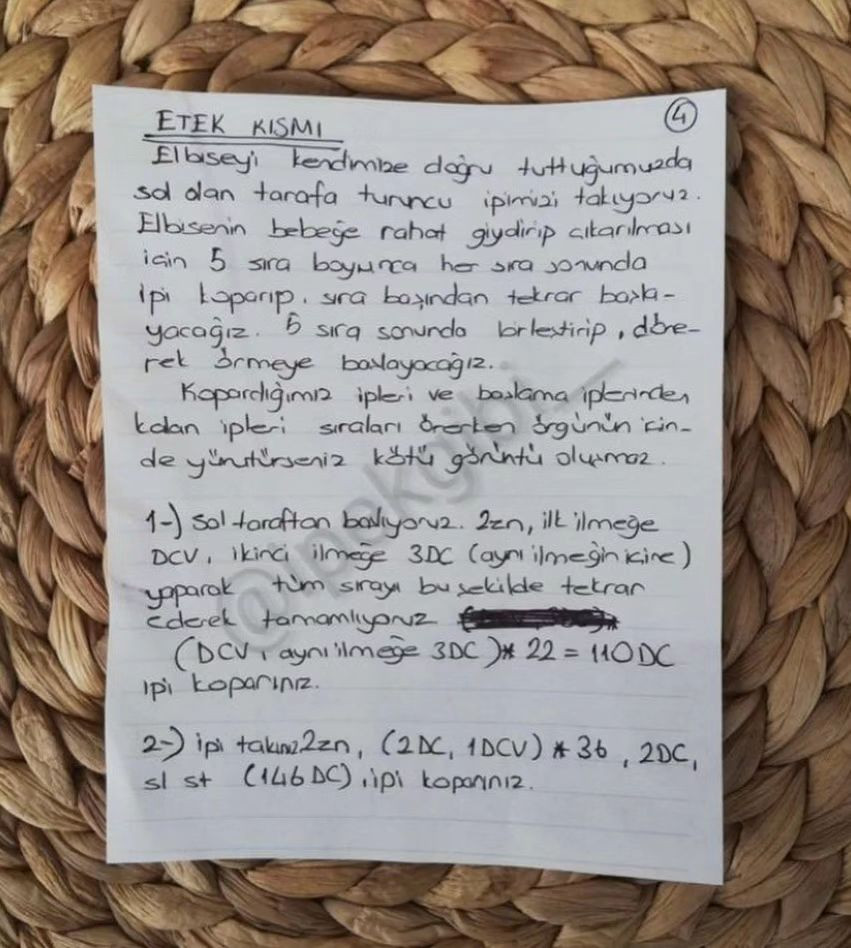 ETEK KISMI
4
Elbiseyi kendimize doğru tuttuğumuzda
sol olan tarafa turuncu ipimizi takıyoruz.
Elbisenin bebeğe rahat giydirip çıkarılması
için 5 sıra boyunca her sıra sonunda
ipi koparıp, sıra başından tekrar başla-
yacağız. 5 sıra sonunda birleştirip, döne-
rek örmeye başlayacağız.
Kopardığımız ipleri ve başlama iplerinden
kalan ipleri sıraları örerken örgünün için-
de yürütürseniz kötü görüntü oluşmaz.
1-) Sol taraftan başlıyoruz. 2zn, ilk ilmeğe
DCV, ikinci ilmeğe 3DC (aynı ilmeğin içine)
yaparak tüm sırayı bu şekilde tekrar
ederek tamamlıyoruz
(DCV, aynı ilmeğe 3DC)* 22 = 110DC
ipi koparınız.
2-) ipi takınız 2zn, (2DC, 1DCV) * 36, 2DC,
sl st (146 DC), ipi koparınız.
@ipekgibi__